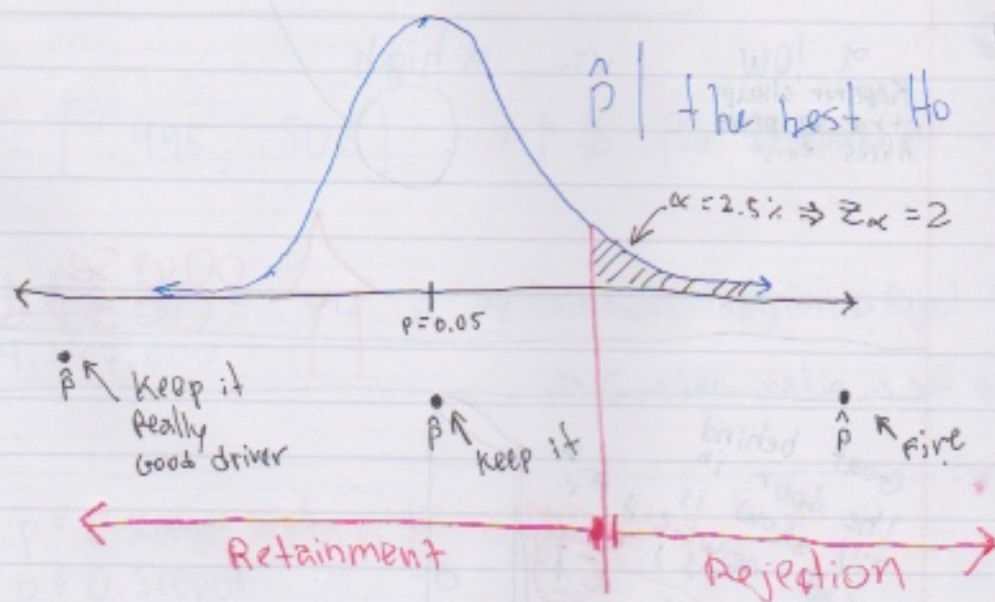 p̂ | the best Ho
α = 2.5% ⇒ Zα = 2
P=0.05
p̂ Keep it
Really
Good driver
p̂ Keep it
p̂ Fire
Retainment
Rejection
α low
high
behind